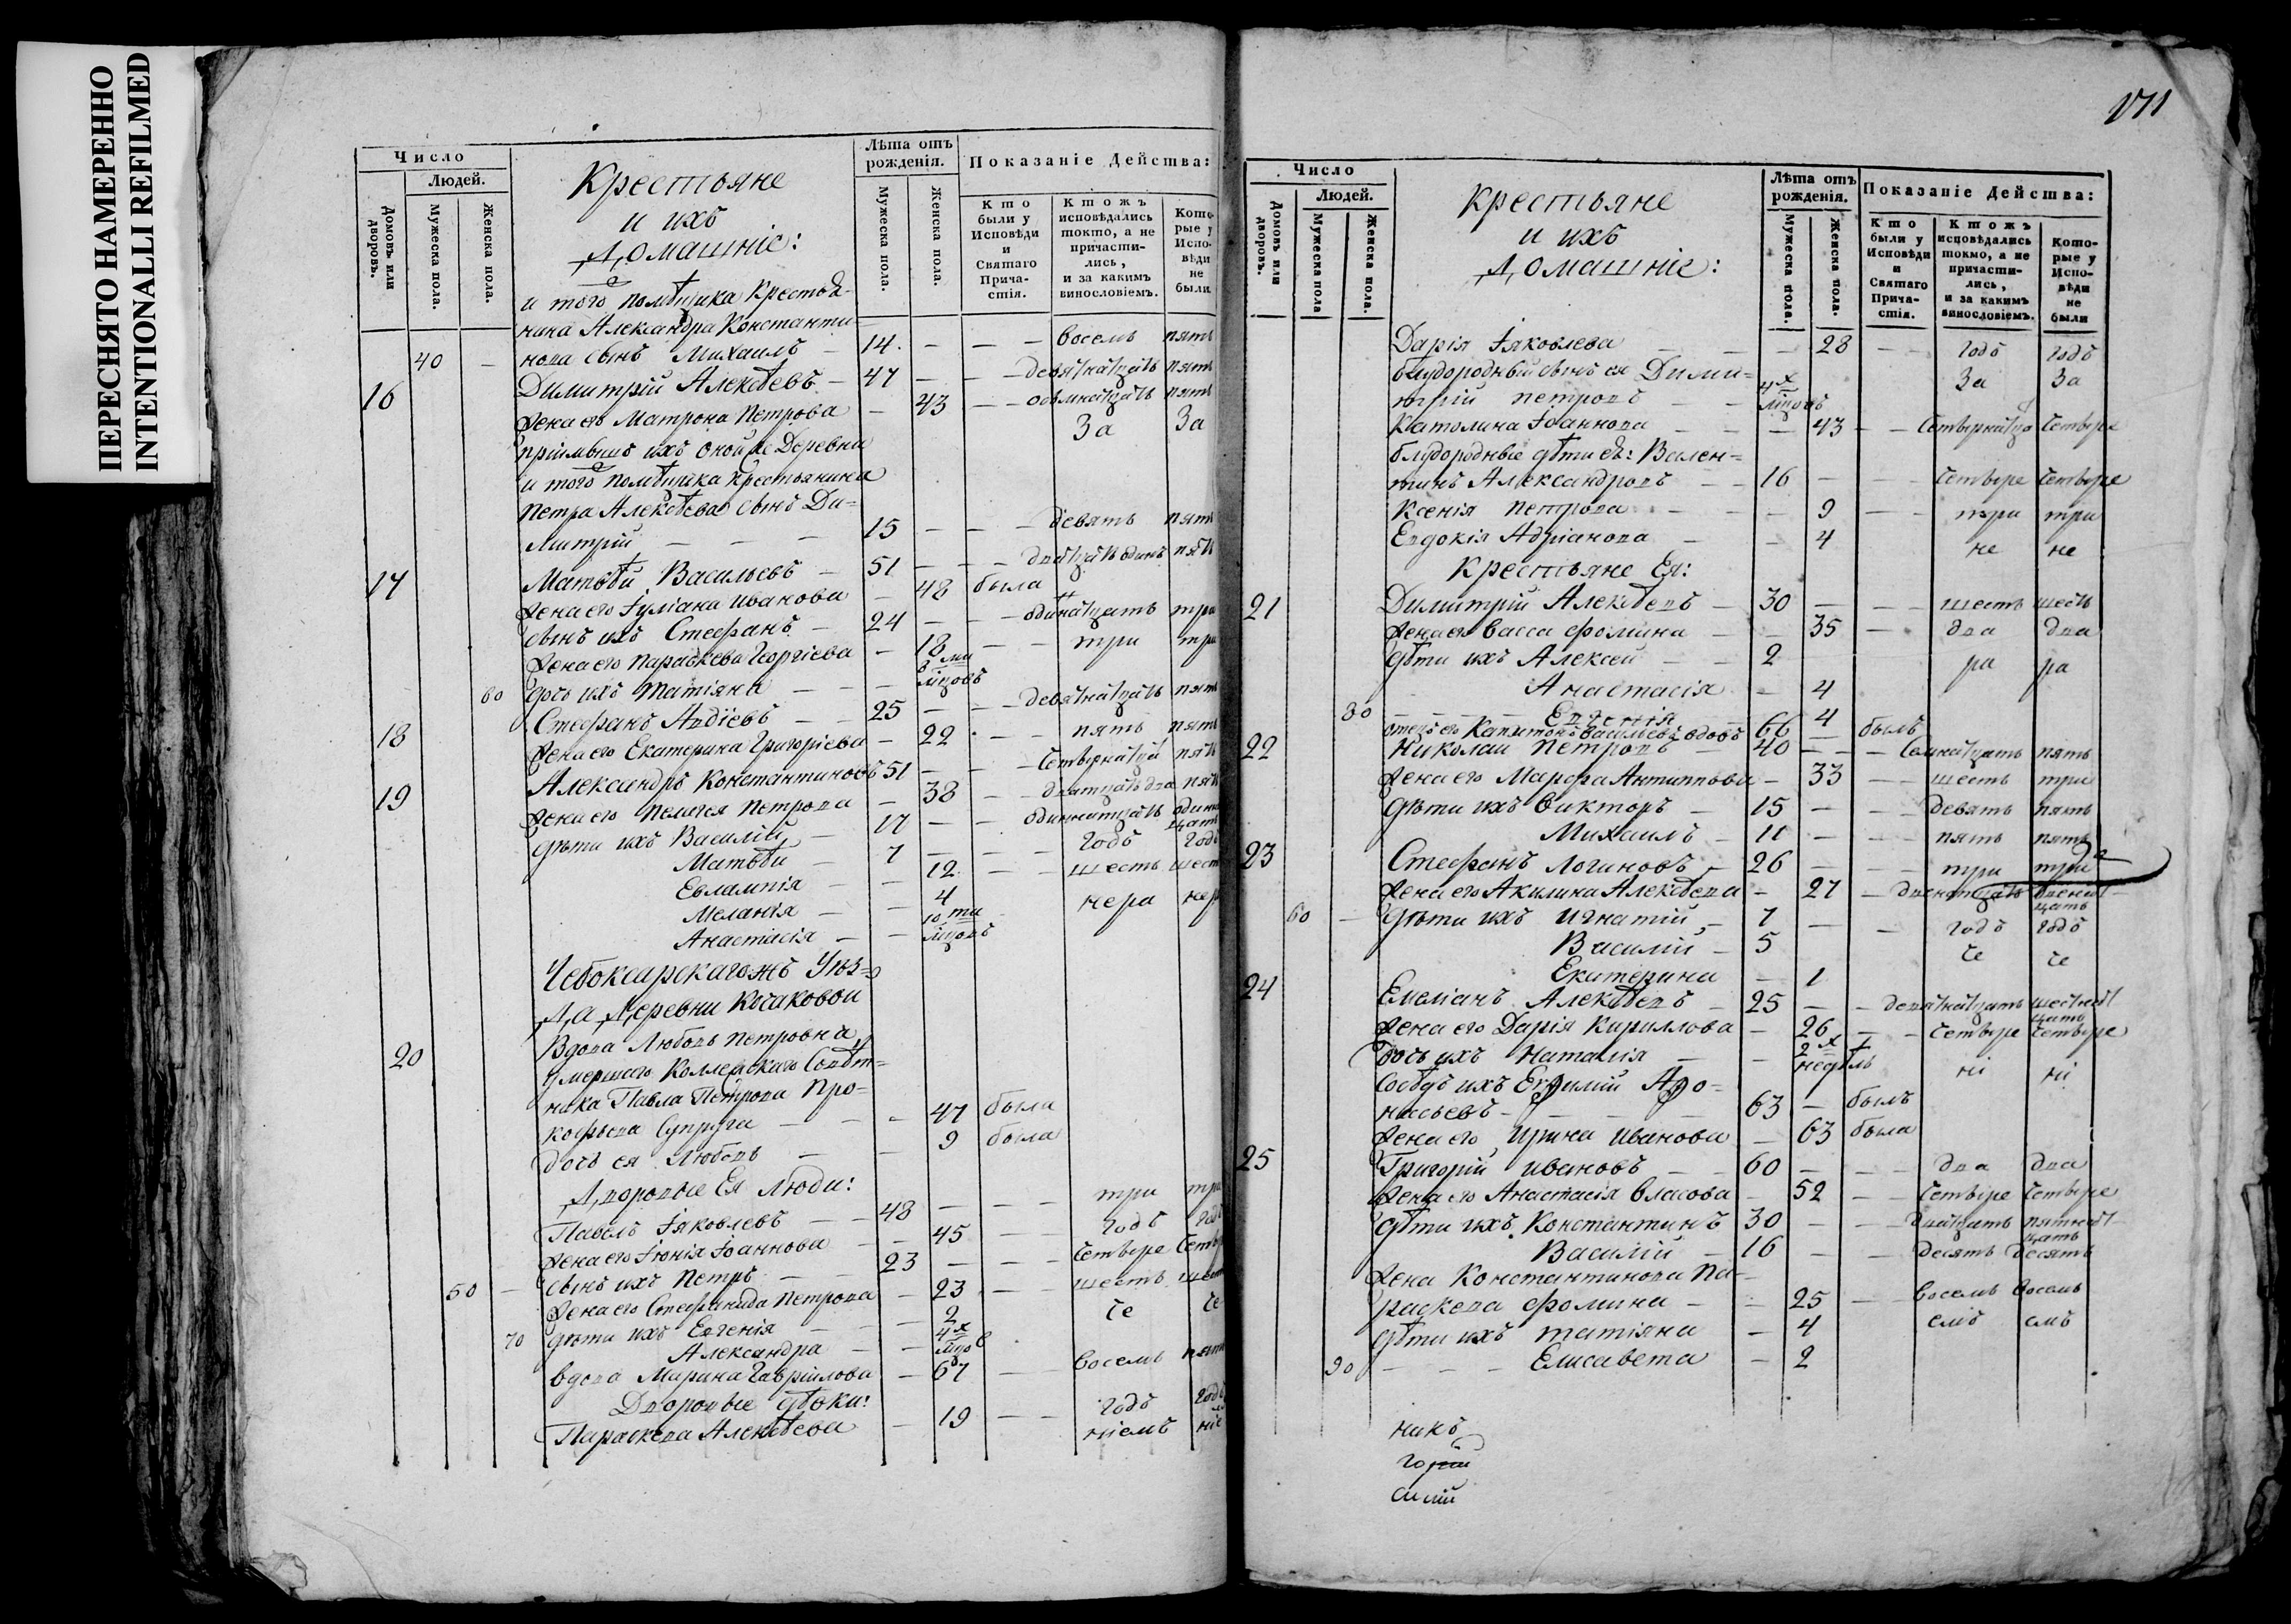 ПЕРЕСНЯТО НАМЕРЕННО
INTENTIONALLI REFILMED
Число
Людей.
Домовъ или дворовъ.
Мужеска пола.
Женска пола.
Крестьяне
и ихъ
Домашніе:
Лѣта отъ рожденія.
Мужеска пола.
Женска пола.
Показаніе Действа:
Кто были у Исповѣди и Святаго Причастія.
Ктожъ исповѣдались токмо, а не причастились, и за какимъ винословіемъ.
Которые у Исповѣди не были
и того помѣщика крестья-
нина Александра Константи-
40 — нова сынъ Михаилъ — 14 — — — восемь пять
16 Димитрій Алексѣевъ — 47 — — — девятнатцать пять
жена его Матрона Петрова — 43 — — осьмнатцать пять
пріимышъ ихъ оной же Деревни За За
и того помѣщика крестьянина
Петра Алексѣева сынъ Ди-
митрій — — — 15 — — — девять пять
17 Матѳѣй Васильевъ — 51 — — — дватцать одинъ пять
жена его Іуліана Иванова — 48 была
сынъ ихъ Стефанъ — 24 — — — одинатцать три
жена его Параскева Георгіева — 18 — — три три
60 дочь ихъ Татіяна — — — 8 ми мцовъ
18 Стефанъ Авдіевъ — — 25 — — — девятнатцать пять
жена его Екатерина Григорієва — 22 — — пять пять
19 Александръ Константиновъ 51 — — — четырнатцать пять
жена его Пелагея Петрова — 38 — — дватцать два пять
дѣти ихъ Василій — 17 — — одиннатцать одинатцать
Матѳѣй — 7 — — — годъ годъ
Евлампія — — 12 — — шесть шесть
Меланія — — 4
Анастасія — — 10 ти мцовъ
Чебоксарскагожъ Уѣз-
да Деревни Косаковой
20 Вдова Любовь Петровна,
умершаго Коллежскаго Совѣт-
ника Павла Петрова Про-
кофьева Супруга — — — 47 была
дочь ея Любовь — — 9 была
Дворовые Ея Люди:
Павелъ Іяковлевъ — — 48 — — — три три
жена его Іюнія Іоаннова — — 45 — — годъ годъ
50 — сынъ ихъ Петръ — — 23 — — — четыре четыре
жена его Стефанида Петрова — 23 — — шесть шесть
70 дѣти ихъ Евгенія — — — 2 че че
Александра — — 4х мцов
вдова Марина Гавріилова — 67 — восемь пять
Дворовые дѣвки:
Параскева Алексѣева — 19 — — годъ годъ
ніемъ
171
Число
Людей.
Домовъ или дворовъ.
Мужеска пола
Женска пола.
Крестьяне
и ихъ
Домашніе:
Лѣта отъ рожденія.
Мужеска пола.
Женска пола.
Показаніе Действа:
Кто были у Исповѣди и Святаго Причастія.
Ктожъ исповѣдались токмо, а не причастились, и за какимъ винословіемъ.
Которые у Исповѣди не были
Дарія Іяковлева — — — 28 — — годъ годъ
блудородный сынъ ея Дими- За За
трій Петровъ — — 4х мцовъ
Католина Іоаннова — — — 43 — — четырнатца четыре
блудородные дѣти еѣ: Вален-
тинъ Александровъ — — 16 — — — четыре четыре
Ксенія Петрова — — — 9 — — три три
Евдокія Адріанова — — 4 не не
Крестьяне Ея:
21 Димитрій Алексѣевъ — 30 — — — шесть шесть
жена его Васса Фомина — — 35 — два два
дѣти ихъ Алексей — — 2 ра ра
Анастасія — 4
80 — — — Евгенія 4
отецъ его Капитонъ Васильевъ вдовъ 66 — былъ
22 Николай Петровъ — 40 — — семнатцать пять
жена его Марфа Антипьева — 33 — — шесть три
дѣти ихъ Викторъ — 15 — — — девять пять
Михаилъ — 11 — — пять пять
23 Стефанъ Логиновъ — 26 — — — три три
жена его Акилина Алексѣева — 27 — двенатцать двенатцать
60 — дѣти ихъ Игнатій — 7 — — годъ годъ
Василій — 5 че че
Екатерина — 1
24 Емеліанъ Алексѣевъ — 25 — — девятнатцать шестнатцать
жена его Дарія Кириллова — 26 — — четыре четыре
дочь ихъ Наталія — — — 2х недѣль
сосѣдъ ихъ Евфимій Афо- ні ні
насьевъ — — — 63 — былъ
жена его Ирина Иванова — 63 была
25 Григорій Ивановъ — — 60 — — — два два
жена его Анастасія Власова — 52 — — четыре четыре
дѣти ихъ Константинъ 30 — — — дватцать пятнатцать
Василій — 16 — — десять десять
жена Константинова Па-
раскева Фомина — — 25 — — восемь восемь
дѣти ихъ Татіяна — 4 емъ емъ
90 — — — Елисавета — 2
никъ
силій